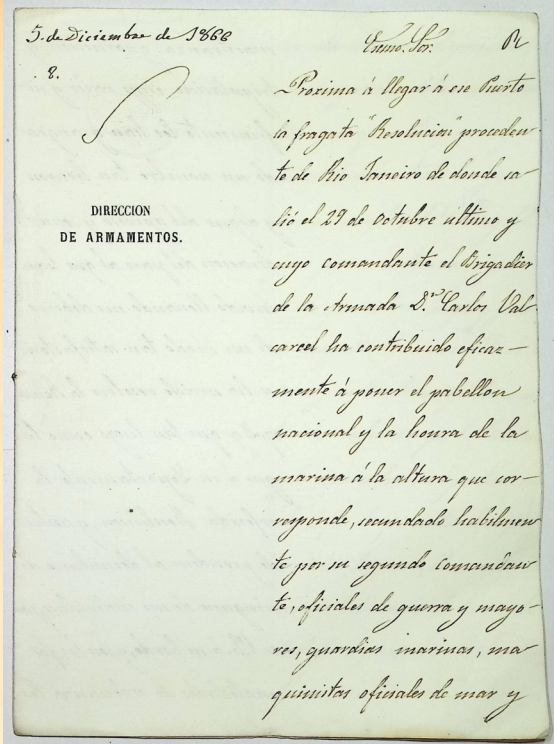 5. de Diciembre de 1866
Exmo. Sor.
R
.8.
DIRECCION
DE ARMAMENTOS.
Proxima á llegar á ese Puerto
la fragata "Resolucion" proceden-
te de Rio Janeiro de donde sa-
lió el 29 de Octubre ultimo y
cuyo comandante el Brigadier
de la Armada Dn. Carlos Val-
carcel ha contribuido eficaz-
mente á poner el pabellon
nacional y la honra de la
marina á la altura que cor-
responde, secundado habilmen
te por su segundo comandan
te, oficiales de guerra y mayo-
res, guardias marinas, ma-
quinistas oficiales de mar y